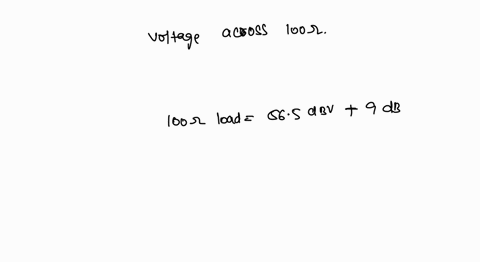 voltage across 100Ω.
100Ω load = 56.5 dBV + 9 dB